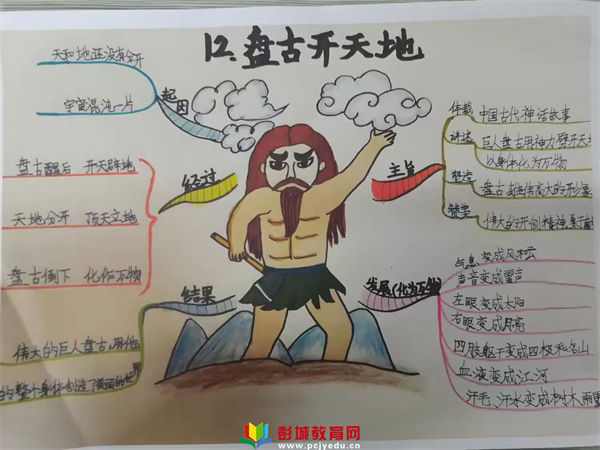 12.盘古开天地
起因
天和地还没有分开
宇宙混沌一片
经过
盘古醒后 开天辟地
天地分开 顶天立地
盘古倒下 化作万物
结果
伟大的巨人盘古,用他
的整个身体创造了美丽的世界
主旨
体裁
中国古代神话故事
讲述
巨人盘古用神力劈开天地
以身体化为万物
想学
盘古
伟大的
赞美
伟大的开创精神
发展(化为万物)
气息变成风和云
声音变成雷声
左眼变成太阳
右眼变成月亮
四肢躯干变成四极和名山
血液变成江河
汗毛、汗水变成树木、雨露
彭城教育网
www.pcjyedu.cn